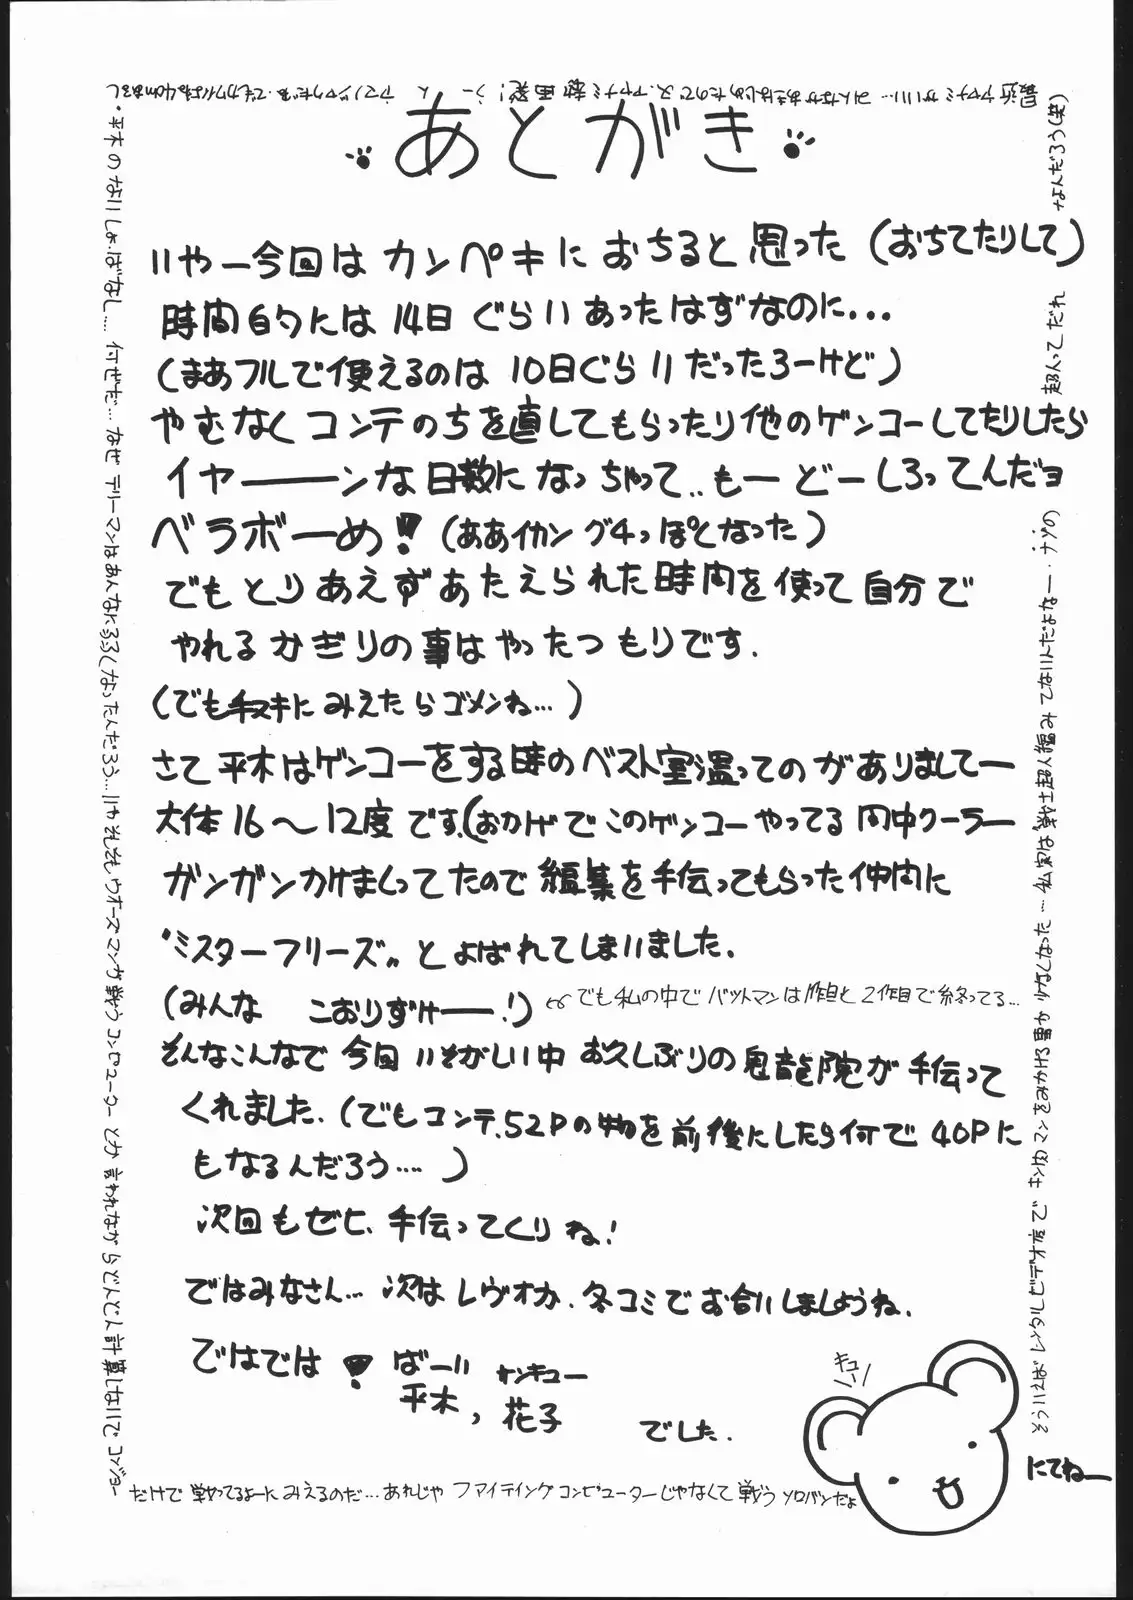 あとがき
いやー今回はカンペキにおちると思った(おちてたりして)
時間的には14日ぐらいあったはずなのに...
(まあフルで使えるのは10日ぐらいだったろーけど)
やむなくコンテのちを直してもらったり他のゲンコーしてたりしたら
イヤーーンな日数になっちゃって..もーどーしろってんだヨ
ベラボーめ!(ああイカングチっぽくなった)
でもとりあえずあたえられた時間を使って自分で
やれるかぎりの事はやったつもりです.
(でも手ヌキにみえたらゴメンね...)
さて平木はゲンコーをする時のベスト室温ってのがありましてー
大体16〜12度です.(おかげでこのゲンコーやってる間中クーラー
ガンガンかけまくってたので編集を手伝ってもらった仲間に
"ミスターフリーズ"とよばれてしまいました.
(みんな こおりずけーー!)
でも私の中でバットマンは1作目と2作目で終ってる...
そんなこんなで今回いそがしい中お久しぶりの鬼龍院が手伝って
くれました.(でもコンテ.52Pの物を前後にしたら何で40Pに
もなるんだろう....)
次回もゼヒ、手伝ってくりね!
ではみなさん...次はレヴォか、冬コミでお合いしましょうね.
ではでは!ばーい サンキュー
平木, 花子 でした.
キュー
にてねー
・平木のないしょばなし...何ぜだ...なぜテリーマンはあんなに弱くなったんだろう...いやそもそもウォーズマンが戦うコンピューターとか言われながらどんどん計算しないでコンジョー
だけで戦ってるよーにみえるのだ...あれじゃファイティングコンピューターじゃなくて戦うソロバンだよ
そういえばレンタルビデオ店でキン肉マンをみかける事が少なくなった...私実は"戦士超人編みてないんだよなー・ナゾの
超人ってだれ
なんだろう(笑)